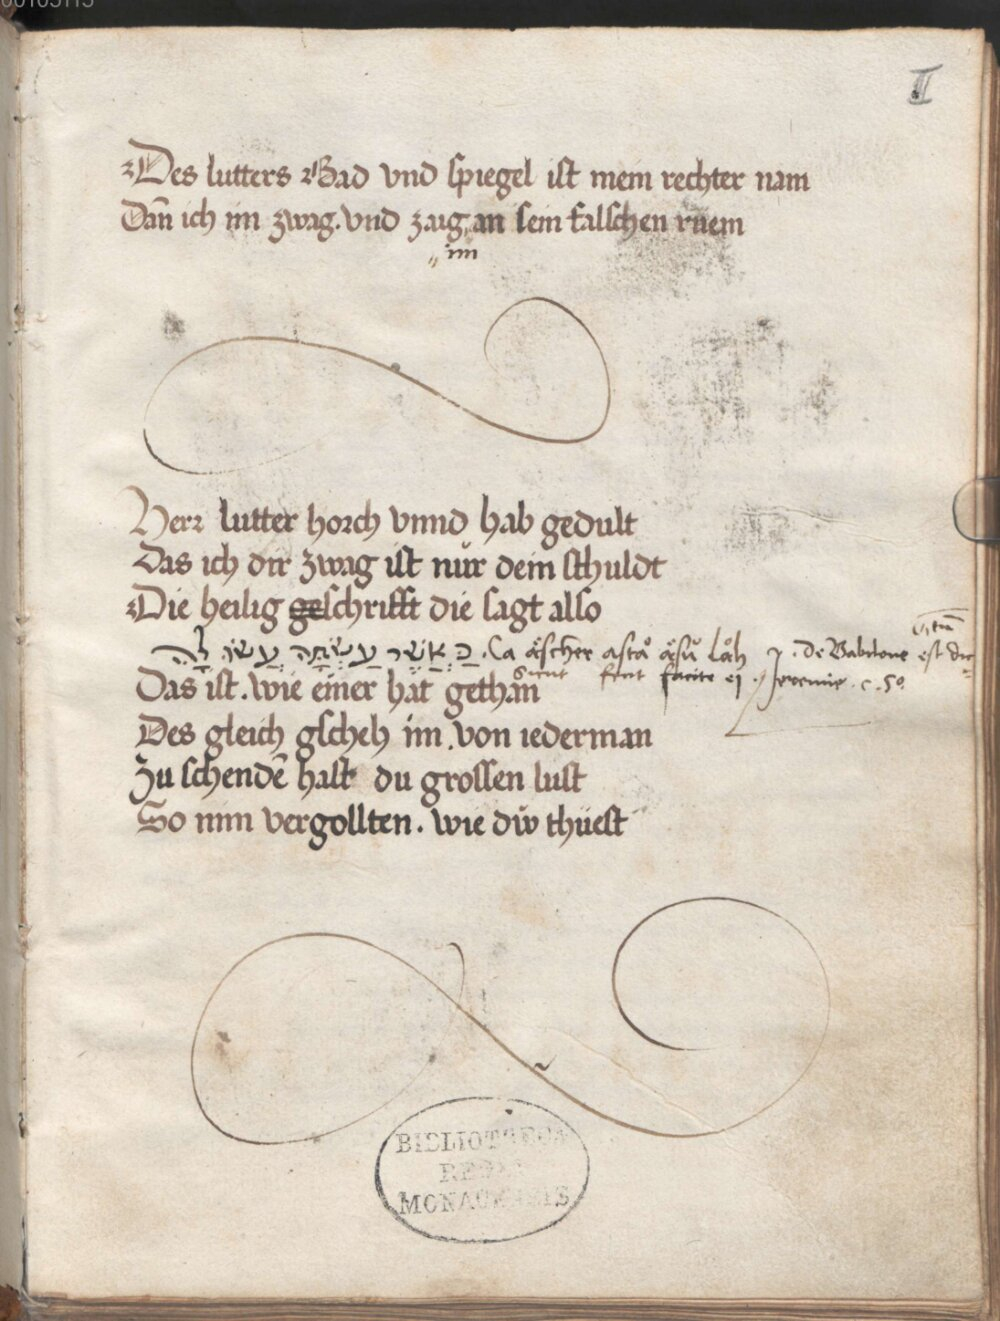 II
Des lutters Bad vnd spiegel ist mein rechter nam
Dañ ich im zwag. vnd zaig an sein falschen rüem
im
Herr lutter horch vnnd hab gedult
Das ich dir zwag ist nůr dein schuldt
Die heilig geschrifft die sagt also
כַּאֲשֶׁר עָשְׂתָה עֲשׂוּ לָהּ . Ca äscher asta äsu lah . de Babilone est
Sicut fecit facite ei . Jeremie . c. 50
Das ist . wie einer hat gethan
Des gleich gscheh im . von iederman
Zu schendẽ hast du grossen lust
So nim vergollten . wie dw thüest
BIBLIOTHECA
REGIA
MONACENSIS